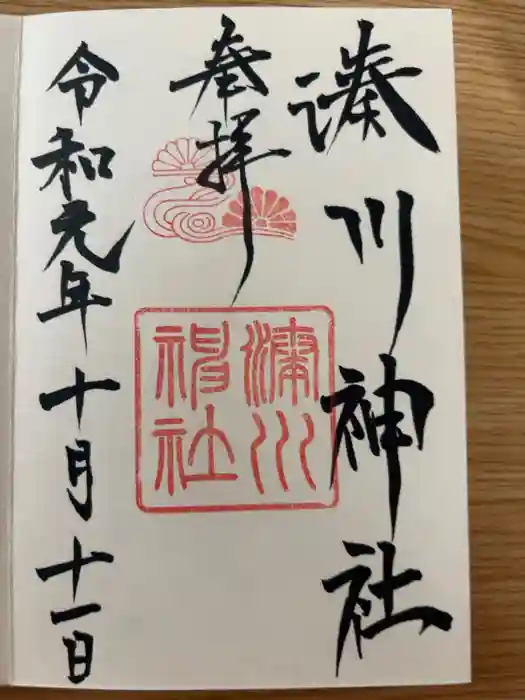 湊川神社
奉拝
湊川神社
令和元年十月十一日